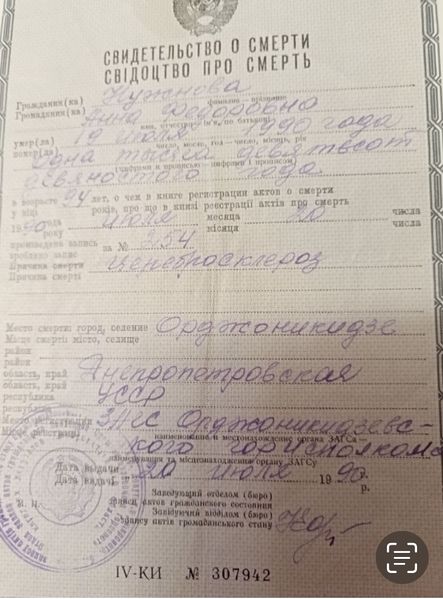 СВИДЕТЕЛЬСТВО О СМЕРТИ
СВІДОЦТВО ПРО СМЕРТЬ
Гражданин(ка) Нужнова
Громадянин(ка)
фамилия
Анна Федоровна
имя, отчество
умер(ла) 19 июля 1990 года
помер(ла) число, месяц, год
Одна тысяча девятьсот
девяностого года
в возрасте 94 лет, о чем в книге регистрации актов о смерти
у віці років, про що в книзі реєстрації актів про смерть
1990 года июля месяца 20 числа
року місяця числа
произведена запись за № 354
зроблено запис
Причина смерти Церебросклероз
Причина смерті
Место смерти: город, селение Орджоникидзе
Місце смерті: місто, селище
район
район
область, край Днепропетровская
область, край
республика УССР
республіка
Место регистрации ЗАГС Орджоникидзевс-
Місце реєстрації
наименование и местонахождение органа ЗАГСа
кого горисполкома
найменування та місцезнаходження органу ЗАГСу
Дата выдачи 20 июля 1990 г.
Дата видачі р.
М. П.
Заведующий отделом (бюро)
записи актов гражданского состояния
Завідуючий відділом (бюро)
запису актів громадянського стану
IV-КИ № 307942